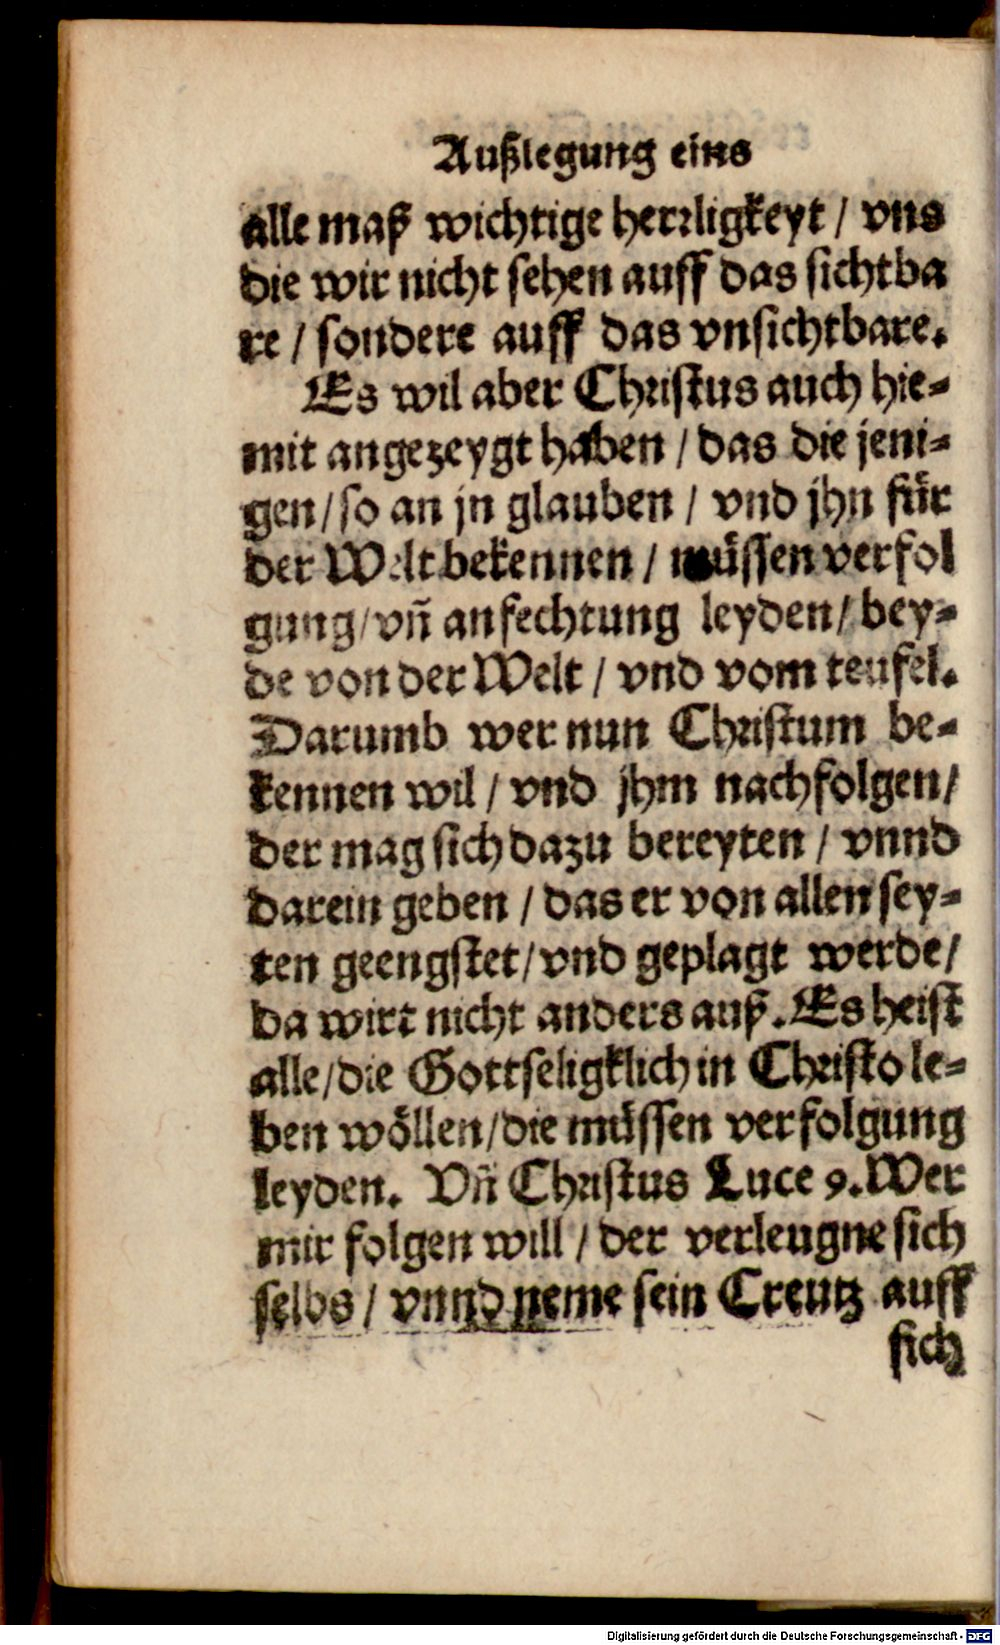 Außlegung eins
alle maß wichtige herrligkeyt / vns
die wir nicht sehen auff das sichtba
re / sondere auff das vnsichtbare.
Es wil aber Christus auch hie-
mit angezeygt haben / das die jeni-
gen / so an jn glauben / vnd jhn für
der Welt bekennen / müssen verfol
gung / vñ anfechtung leyden / bey-
de von der Welt / vnd vom teufel.
Darumb wer nun Christum be-
kennen wil / vnd jhm nachfolgen /
der mag sich dazu bereyten / vnnd
darein geben / das er von allen sey-
ten geengstet / vnd geplagt werde /
da wirt nicht anders auß. Es heist
alle / die Gottseligklich in Christo le-
ben wöllen / die müssen verfolgung
leyden. Vñ Christus Luce 9. Wer
mir folgen will / der verleugne sich
selbs / vnnd neme sein Creutz auff
sich
Digitalisierung gefördert durch die Deutsche Forschungsgemeinschaft - DFG